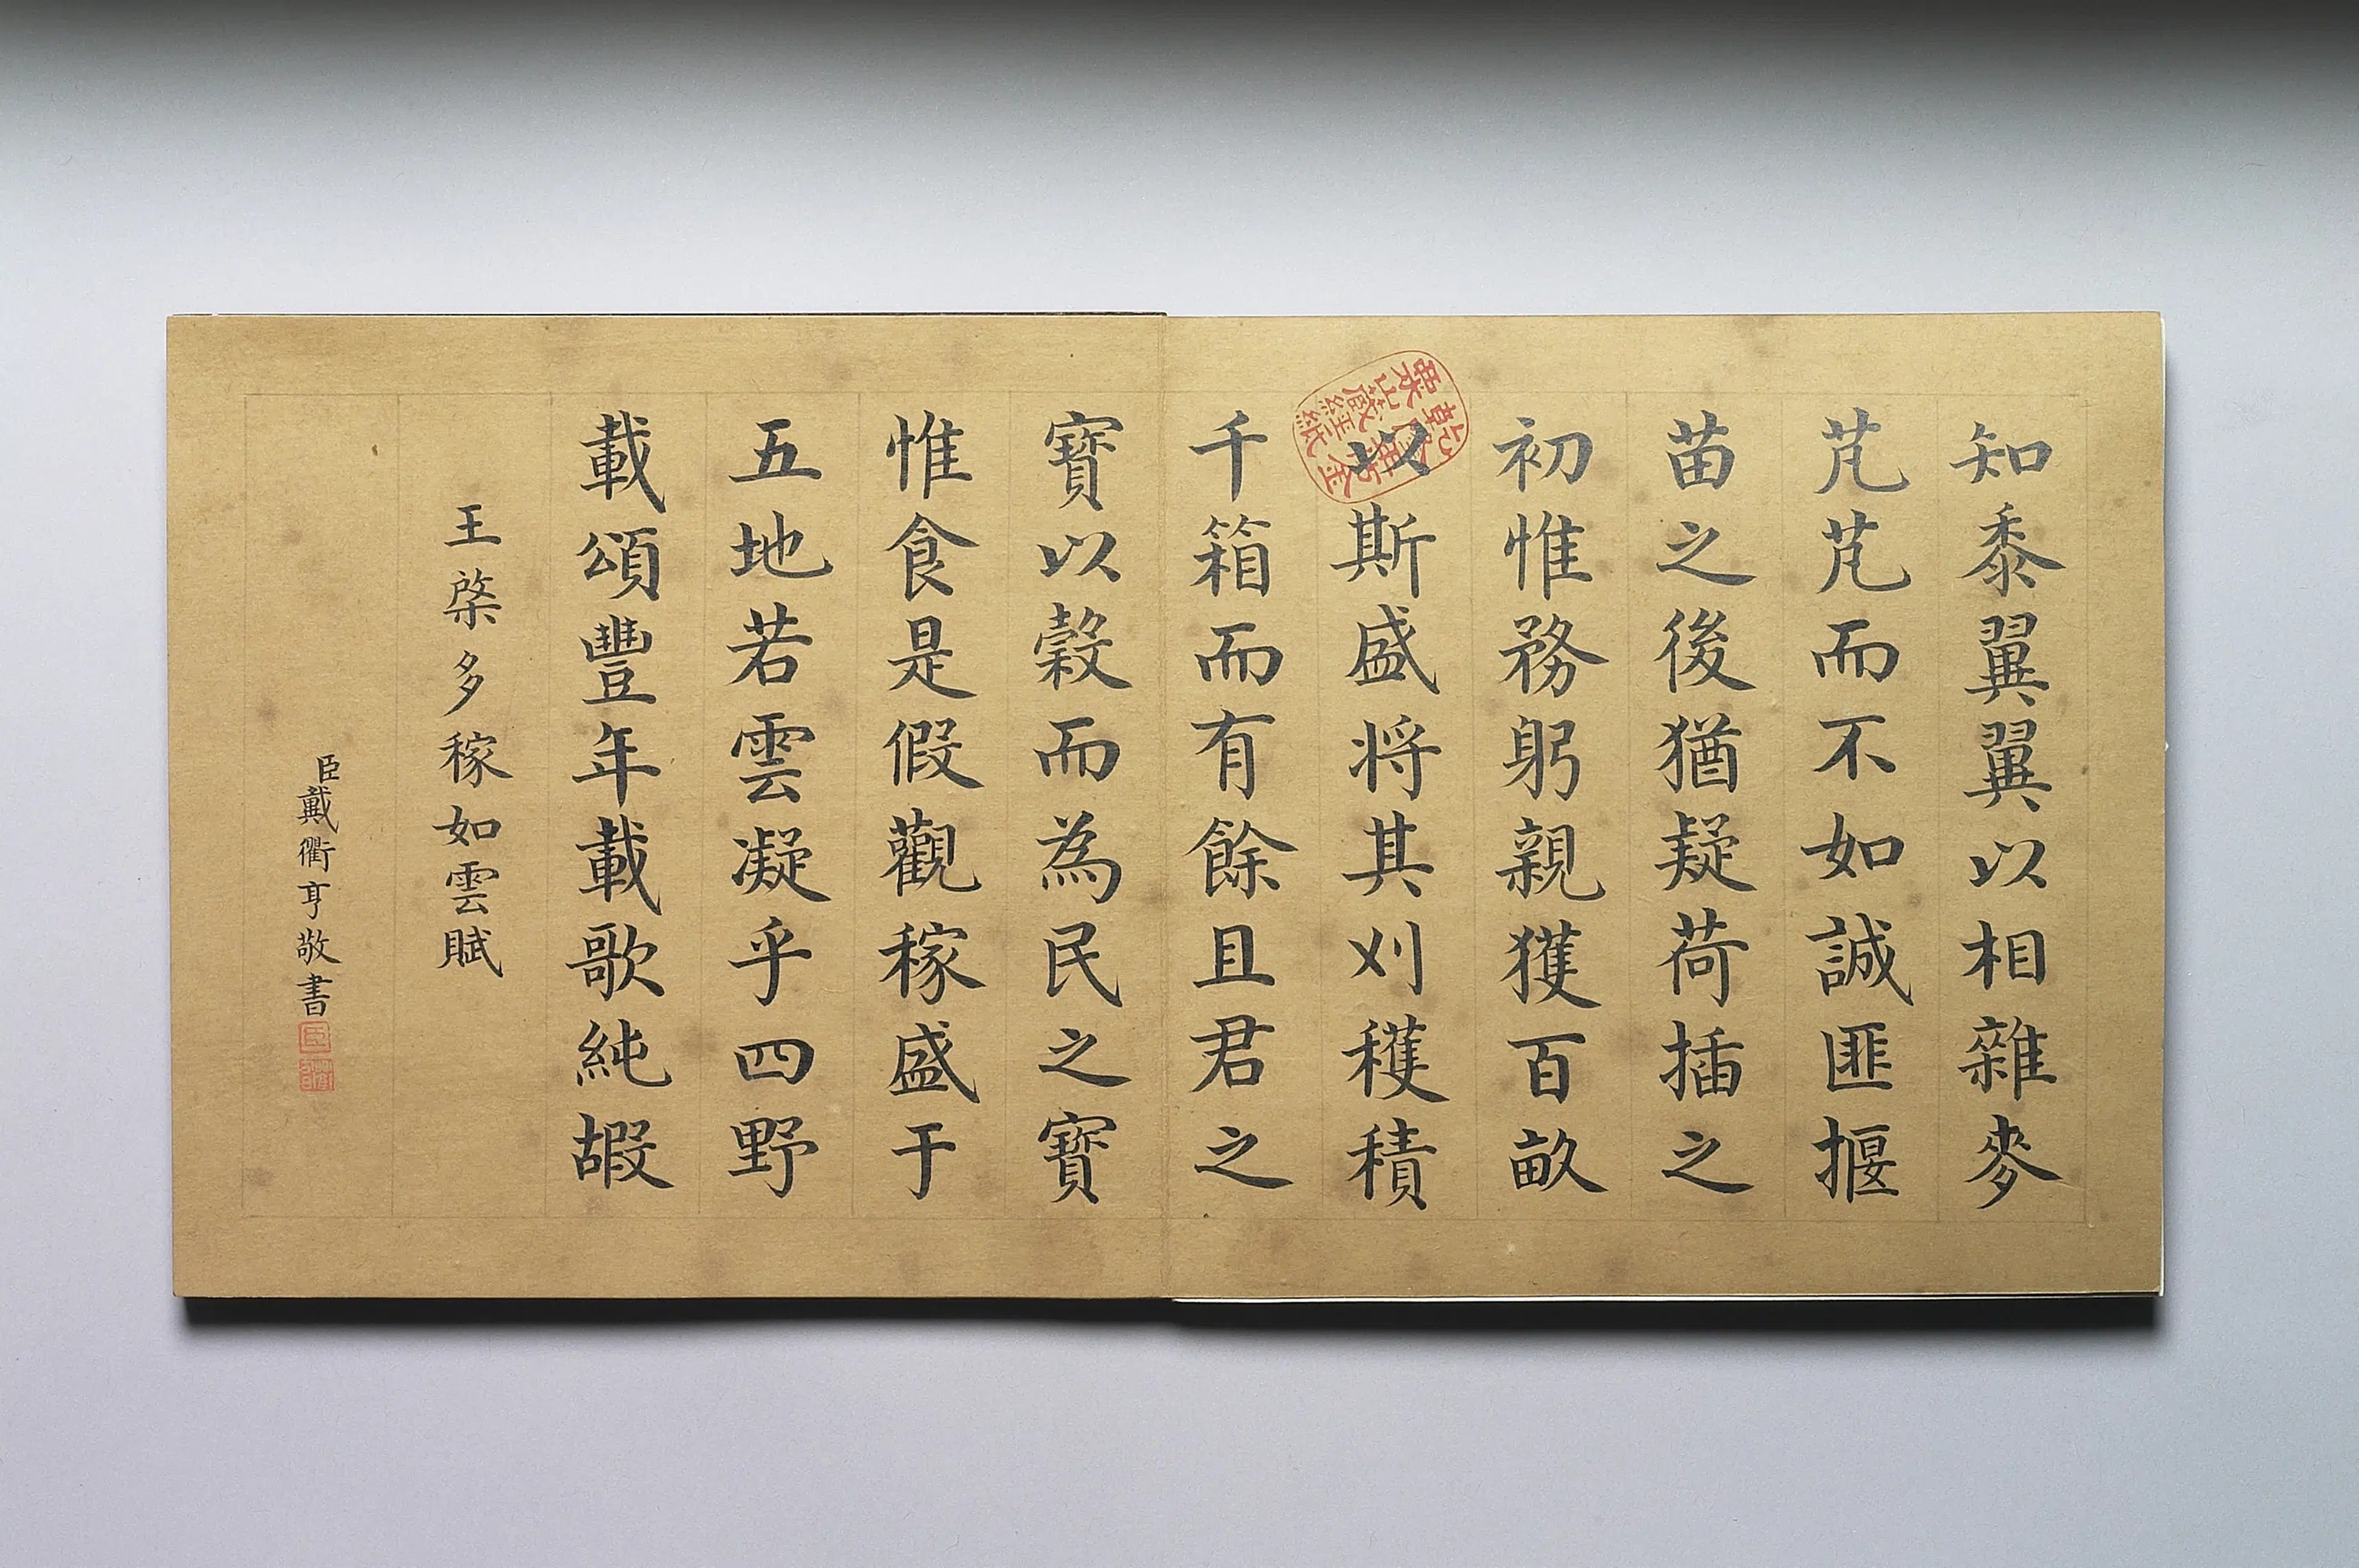 知黍翼翼以相雜麥
芃芃而不如誠匪揠
苗之後猶疑荷插之
初惟務躬親獲百畝
以斯盛将其刈穫積
千箱而有餘且君之
寶以榖而為民之寶
惟食是假觀稼盛于
五地若雲凝乎四野
載頌豐年載歌純嘏
王棨多稼如雲賦
臣戴衢亨敬書